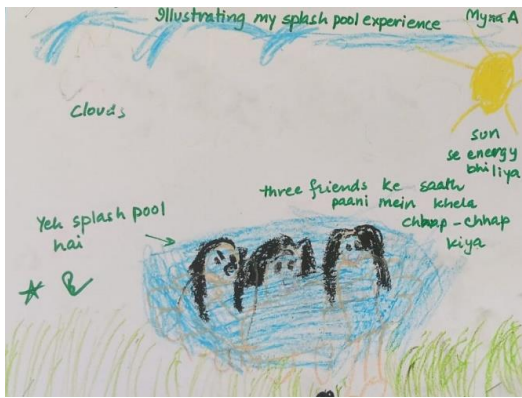 Illustrating my splash pool experience
Myra A
Clouds
sun
se energy
bhi liya
three friends ke saath
paani mein khela
chhap-chhap
kiya
Yeh splash pool
hai